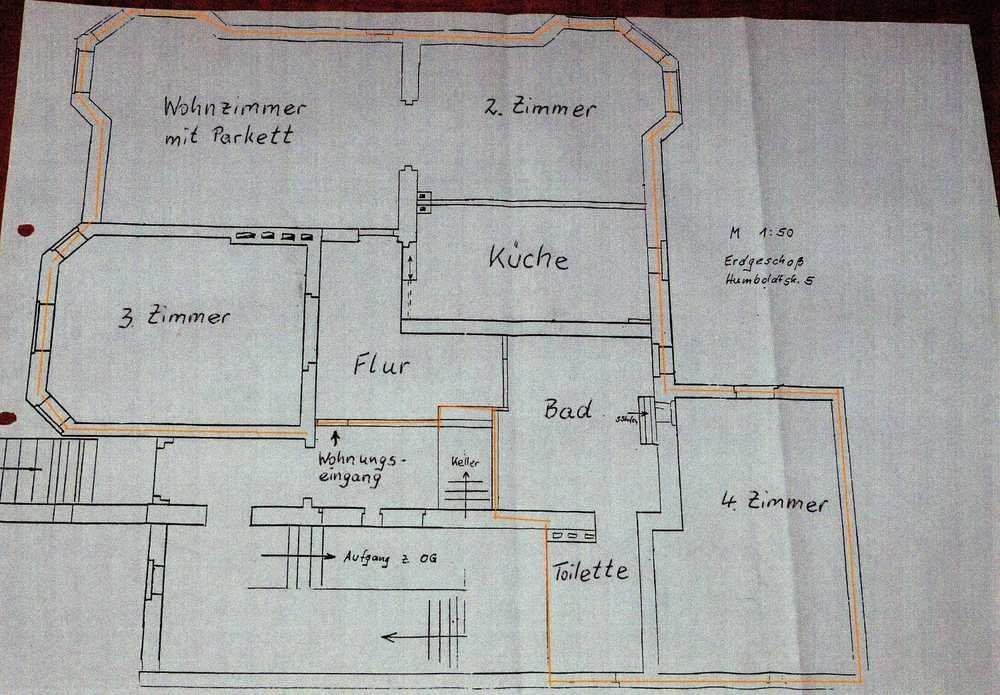 Wohnzimmer
mit Parkett
2. Zimmer
M 1:50
Erdgeschoß
Humboldtstr. 5
Küche
3. Zimmer
Flur
Bad
Wohnungs-
eingang
Keller
4. Zimmer
Aufgang z. OG
Toilette